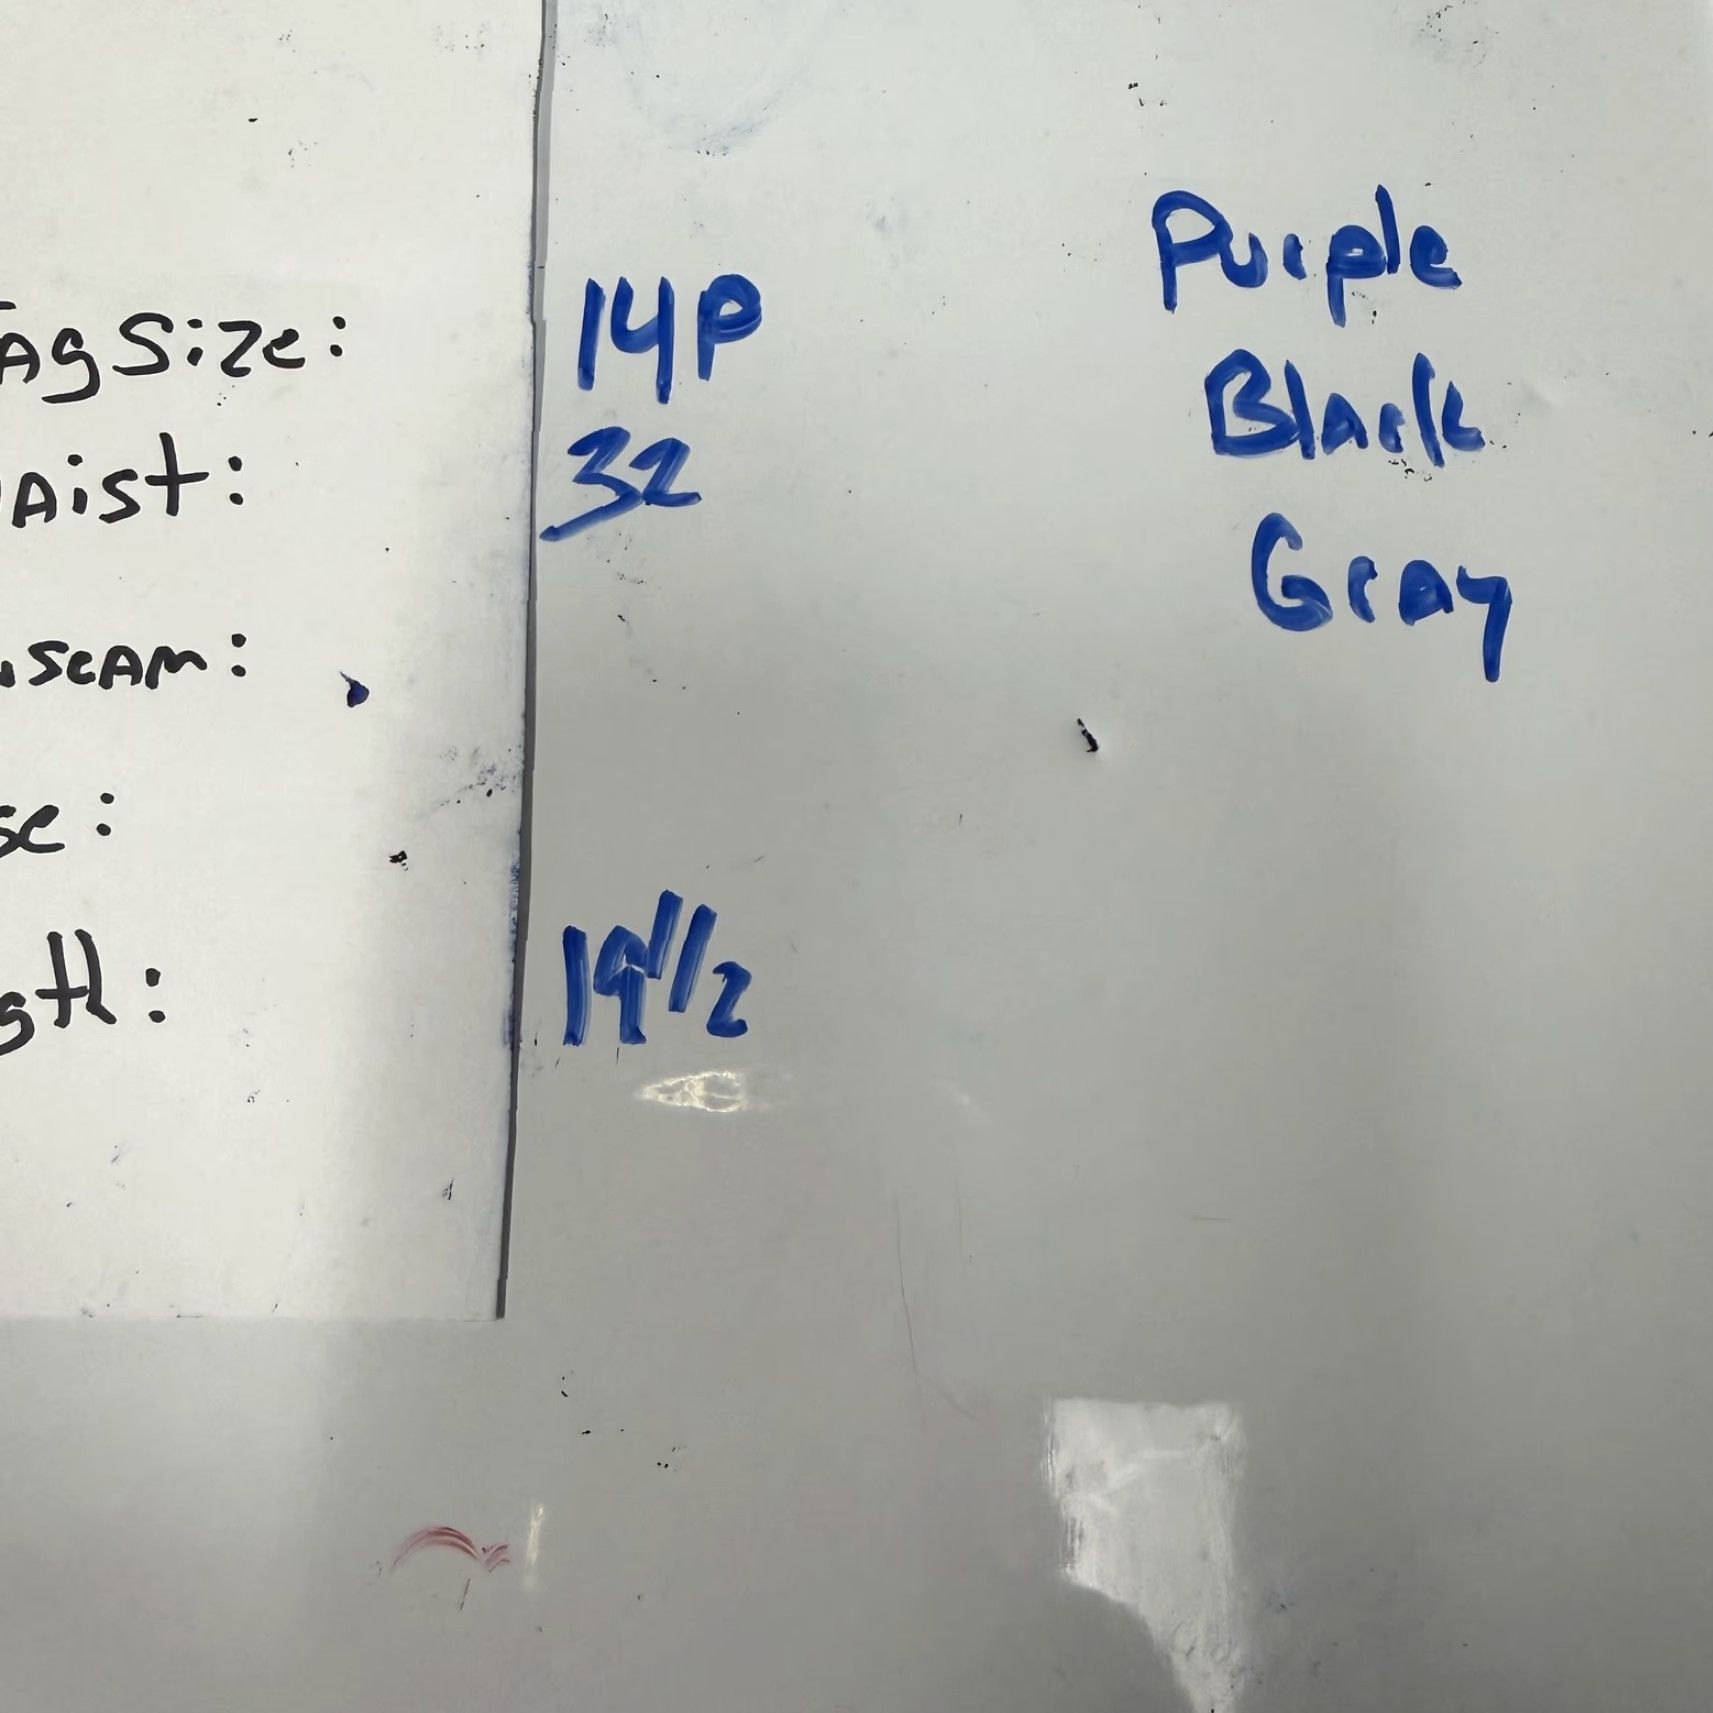 Tag Size: 14P
Waist: 32
Inseam:
se:
gth: 19 1/2
Purple
Black
Gray